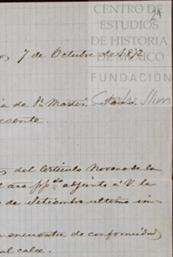 CENTRO DE
ESTUDIOS
DE HISTORIA
DE MÉXICO
FUNDACIÓN
Carlos Slim
7 de Octubre de 1872
ia de P. Mader.
esente.
del Artículo Noveno de la
adjunto á V. la
de Setiembre último in-
encuentre de conformidad
al calce.